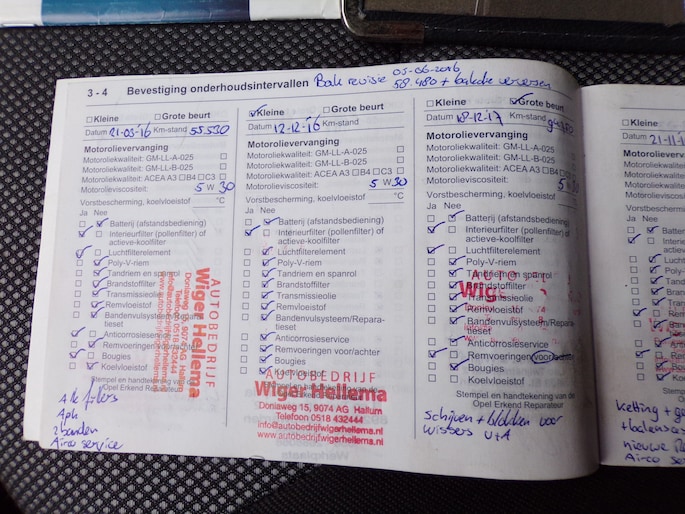 3 - 4 Bevestiging onderhoudsintervallen Bak revisie 05-06-2016
58.480 + bakolie verversen
□Kleine □Grote beurt
Datum 21-03-'16 Km-stand 55.530
Motorolievervanging
Motoroliekwaliteit: GM-LL-A-025
Motoroliekwaliteit: GM-LL-B-025
Motoroliekwaliteit: ACEA A3 □B4 □C3
Motorolieviscositeit: 5 W 30
Vorstbescherming, koelvloeistof °C
Ja Nee
Batterij (afstandsbediening)
Interieurfilter (pollenfilter) of
actieve-koolfilter
Luchtfilterelement
Poly-V-riem
Tandriem en spanrol
Brandstoffilter
Transmissieolie
Remvloeistof
Bandenvulsysteem/Repara-
tieset
Anticorrosieservice
Remvoeringen voor/achter
Bougies
Koelvloeistof
Stempel en handtekening van de
Opel Erkend Reparateur
AUTOBEDRIJF
Wiger Hellema
Doniaweg 15, 9074 AG Hallum
Telefoon 0518 432444
info@autobedrijfwigerhellema.nl
www.autobedrijfwigerhellema.nl
Alle filters
Apk
2 banden
Airco service
□Kleine □Grote beurt
Datum 12-12-'16 Km-stand
Motorolievervanging
Motoroliekwaliteit: GM-LL-A-025
Motoroliekwaliteit: GM-LL-B-025
Motoroliekwaliteit: ACEA A3 □B4 □C3
Motorolieviscositeit: 5 W 30
Vorstbescherming, koelvloeistof °C
Ja Nee
Batterij (afstandsbediening)
Interieurfilter (pollenfilter) of
actieve-koolfilter
Luchtfilterelement
Poly-V-riem
Tandriem en spanrol
Brandstoffilter
Transmissieolie
Remvloeistof
Bandenvulsysteem/Repara-
tieset
Anticorrosieservice
Remvoeringen voor/achter
Bougies
Koelvloeistof
AUTOBEDRIJF
Wiger Hellema
Doniaweg 15, 9074 AG Hallum
Telefoon 0518 432444
info@autobedrijfwigerhellema.nl
www.autobedrijfwigerhellema.nl
□Kleine □Grote beurt
Datum 18-12-'17 Km-stand
Motorolievervanging
Motoroliekwaliteit: GM-LL-A-025
Motoroliekwaliteit: GM-LL-B-025
Motoroliekwaliteit: ACEA A3 □B4 □C3
Motorolieviscositeit: 5 W 30
Vorstbescherming, koelvloeistof °C
Ja Nee
Batterij (afstandsbediening)
Interieurfilter (pollenfilter) of
actieve-koolfilter
Luchtfilterelement
Poly-V-riem
Tandriem en spanrol
Brandstoffilter
Transmissieolie
Remvloeistof
Bandenvulsysteem/Repara-
tieset
Anticorrosieservice
Remvoeringen voor/achter
Bougies
Koelvloeistof
AUTO
Wig
Stempel en handtekening van de
Opel Erkend Reparateur
Schijven + blokken voor
wissers V+A
□Kleine
Datum 21-11-
Motorolieve
Motoroliekwa
Motoroliekwa
Motoroliekwa
Motorolievisc
Vorstbescher
Ja Nee
Batte
Inter
actie
Lucht
Poly-
Tand
Bran
Tran
Rem
Band
tiese
Antic
Rem
Boug
Koel
Stem
ketting +
nieuwe
Airco se